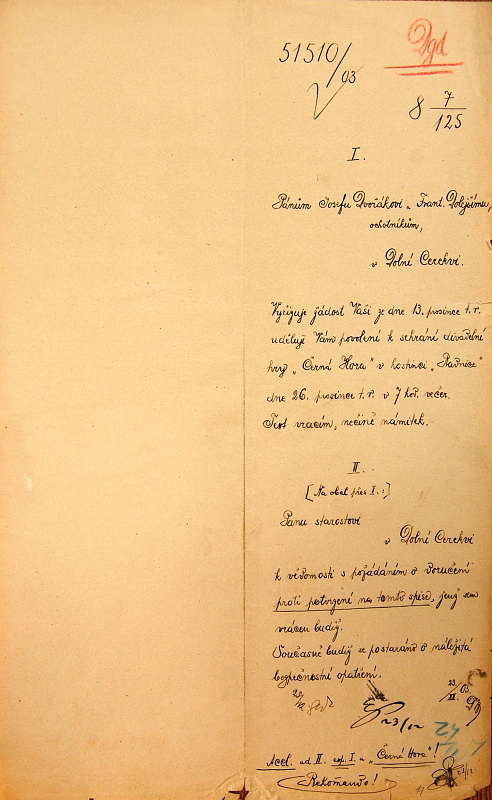 51510/03
Dgd
8 7/125
I.
Pánům Josefu Dvořákovi a Frant. Dolejšímu,
ochotníkům,
v Dolní Cerekvi.
Vyřizuje žádost Vaši ze dne 13. prosince t. r.
uděluji Vám povolení k sehrání divadelní
hry „Černá Hora" v hostinci „Radnice"
dne 26. prosince t. r. v 7 hod. večer.
Text vracím, nečině námitek.
II.
[Na obal přes I.:]
Panu starostovi
v Dolní Cerekvi
k vědomosti s požádáním o doručení
proti potvrzení na tomto spise, jenž sem
vrácen budiž.
Současně budiž se postaráno o náležitá
bezpečnostní opatření.
23/XII 03
23/12
24
Accl. ad II. exp. I a „Černá Hora"!
Rekomando!
23/12